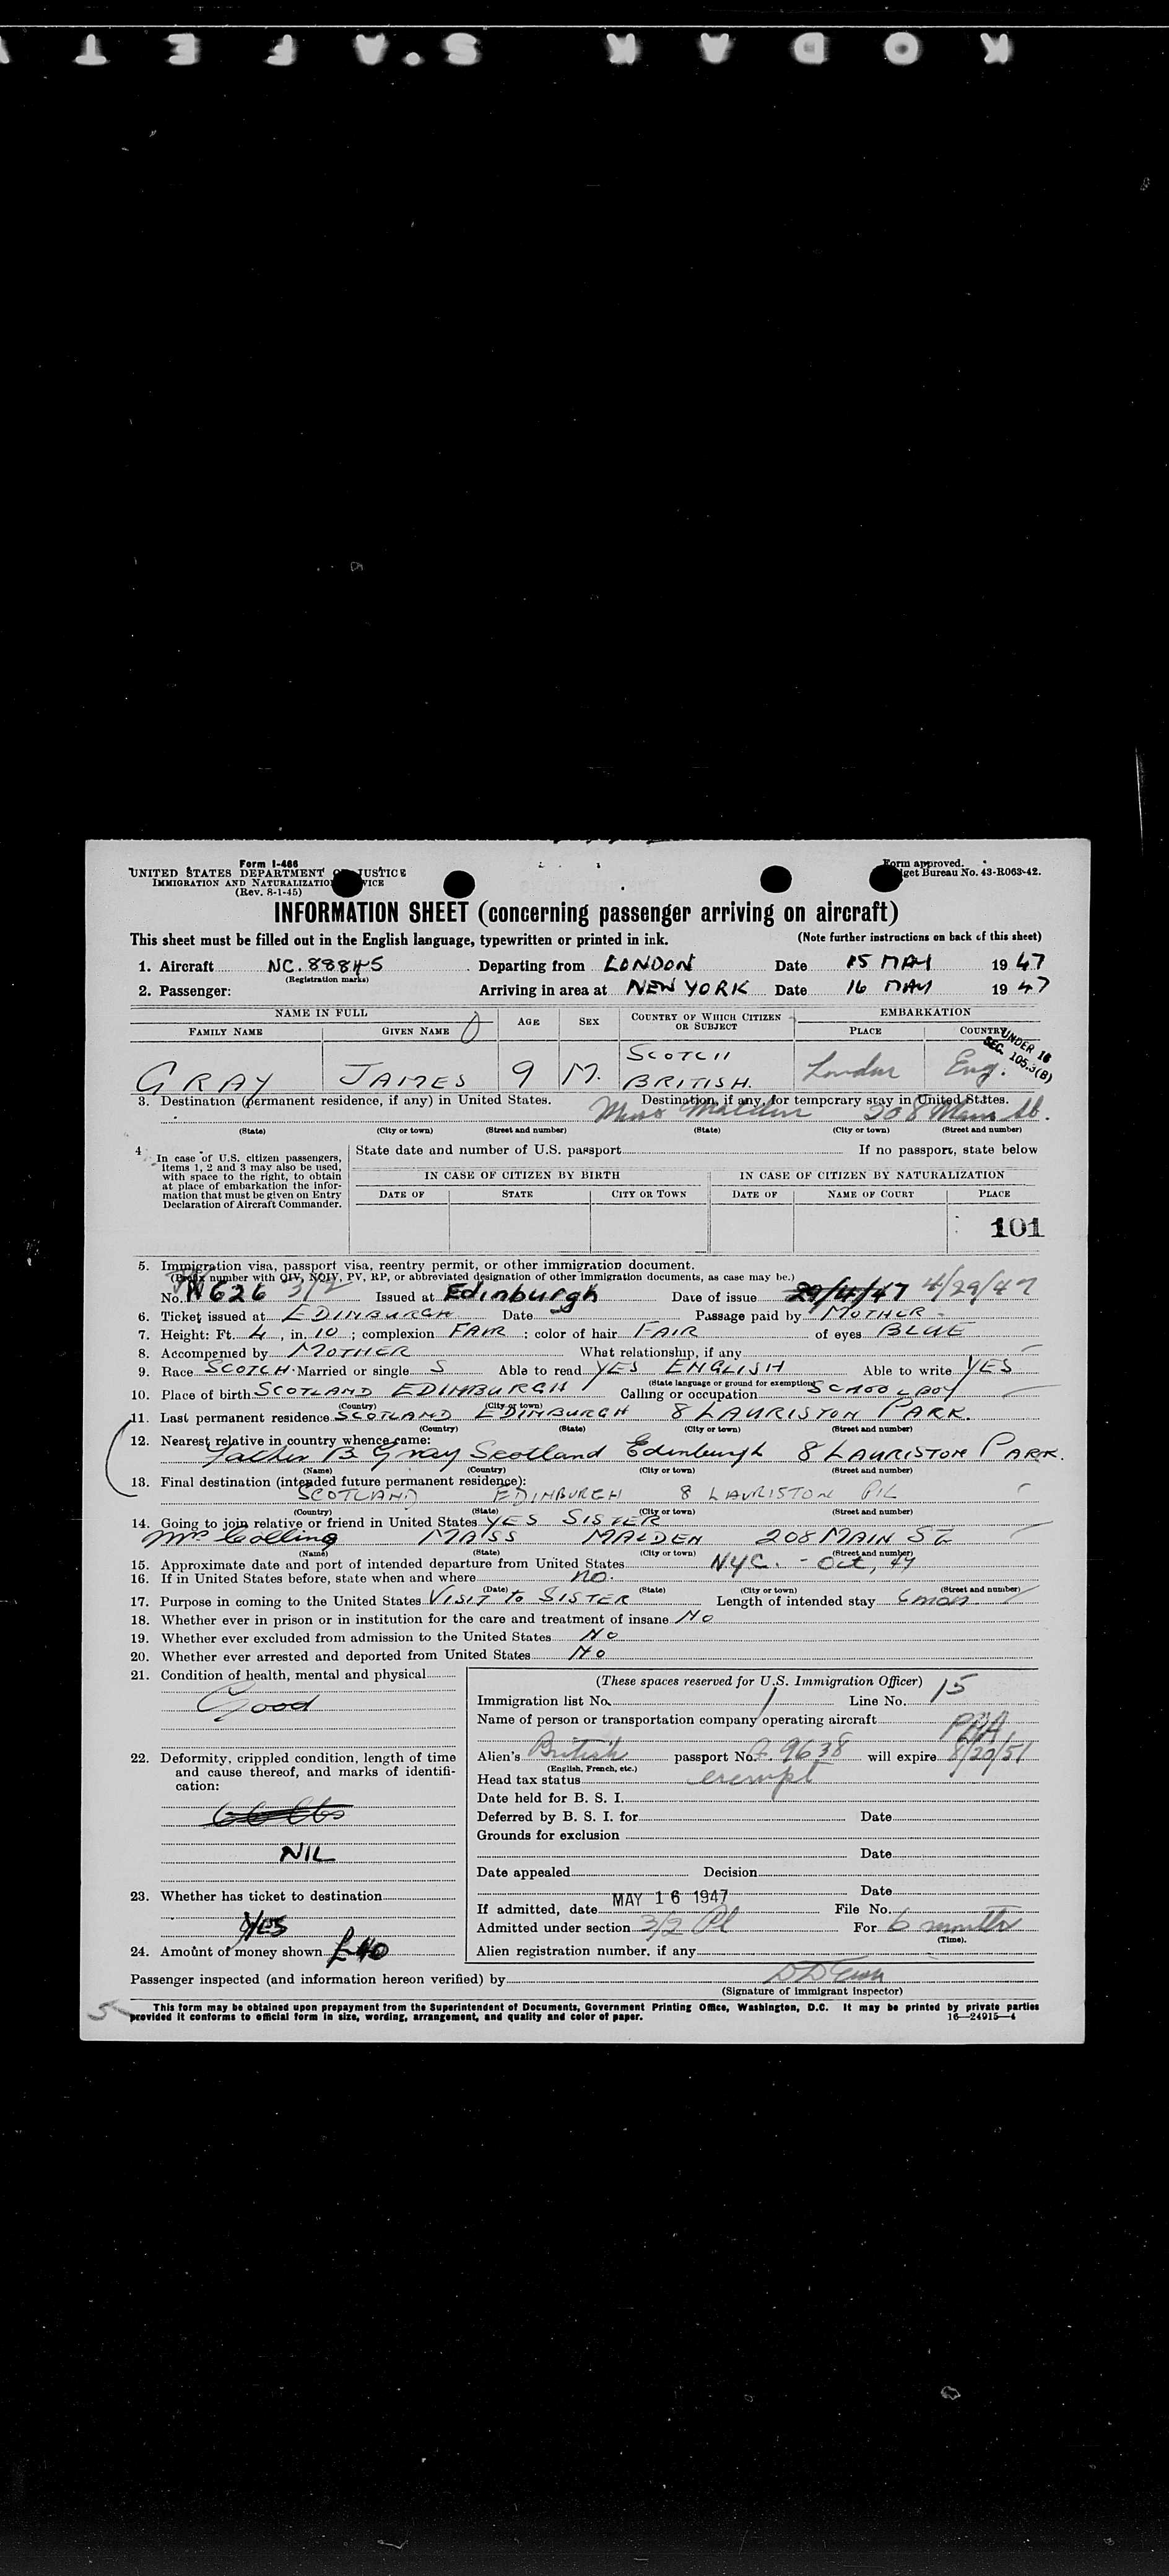 KODAK S.A.F.E.T
Form I-466
UNITED STATES DEPARTMENT OF JUSTICE
IMMIGRATION AND NATURALIZATION SERVICE
(Rev. 8-1-45)
Form approved.
Budget Bureau No. 43-R063-42.
INFORMATION SHEET (concerning passenger arriving on aircraft)
This sheet must be filled out in the English language, typewritten or printed in ink. (Note further instructions on back of this sheet)
1. Aircraft NC. 88845 Departing from LONDON Date 15 MAY 1947
(Registration marks)
2. Passenger: Arriving in area at NEW YORK Date 16 MAY 1947
NAME IN FULL AGE SEX COUNTRY OF WHICH CITIZEN OR SUBJECT EMBARKATION
FAMILY NAME GIVEN NAME PLACE COUNTRY
UNDER 16
SEC. 105.3(B)
GRAY JAMES 9 M. SCOTCH BRITISH. London Eng.
3. Destination (permanent residence, if any) in United States. Destination, if any, for temporary stay in United States.
Malden 208 Main St.
(State) (City or town) (Street and number) (State) (City or town) (Street and number)
4 In case of U.S. citizen passengers, items 1, 2 and 3 may also be used, with space to the right, to obtain at place of embarkation the information that must be given on Entry Declaration of Aircraft Commander.
State date and number of U.S. passport If no passport, state below
IN CASE OF CITIZEN BY BIRTH IN CASE OF CITIZEN BY NATURALIZATION
DATE OF STATE CITY OR TOWN DATE OF NAME OF COURT PLACE
101
5. Immigration visa, passport visa, reentry permit, or other immigration document.
(Prefix number with QIV, NQIV, PV, RP, or abbreviated designation of other immigration documents, as case may be.)
No. 626 3/2 Issued at Edinburgh Date of issue 29/4/47 4/29/47
6. Ticket issued at EDINBURGH Date Passage paid by MOTHER
7. Height: Ft. 4, in. 10; complexion FAIR; color of hair FAIR of eyes BLUE
8. Accompanied by MOTHER What relationship, if any
9. Race SCOTCH. Married or single S Able to read YES ENGLISH Able to write YES
(State language or ground for exemption)
10. Place of birth SCOTLAND EDINBURGH Calling or occupation SCHOOLBOY
(Country) (City or town)
11. Last permanent residence SCOTLAND EDINBURGH 8 LAURISTON PARK.
(Country) (State) (City or town) (Street and number)
12. Nearest relative in country whence came:
Father B Gray Scotland Edinburgh 8 LAURISTON PARK.
(Name) (Country) (City or town) (Street and number)
13. Final destination (intended future permanent residence):
SCOTLAND EDINBURGH 8 LAURISTON PK
(Country) (State) (City or town) (Street and number)
14. Going to join relative or friend in United States YES SISTER
Mrs Colling MASS MALDEN 208 MAIN ST
(Name) (State) (City or town) (Street and number)
15. Approximate date and port of intended departure from United States NYC. - Oct, 47
16. If in United States before, state when and where no.
(Date) (State) (City or town) (Street and number)
17. Purpose in coming to the United States VISIT to SISTER Length of intended stay 6 mos
18. Whether ever in prison or in institution for the care and treatment of insane No
19. Whether ever excluded from admission to the United States No
20. Whether ever arrested and deported from United States No
21. Condition of health, mental and physical
Good
22. Deformity, crippled condition, length of time and cause thereof, and marks of identification:
NIL
23. Whether has ticket to destination
YES
24. Amount of money shown £40
(These spaces reserved for U.S. Immigration Officer)
Immigration list No. 1 Line No. 15
Name of person or transportation company operating aircraft PAA
Alien's British passport No. 9638 will expire 8/20/51
(English, French, etc.)
Head tax status exempt
Date held for B. S. I.
Deferred by B. S. I. for Date
Grounds for exclusion
Date
Date appealed Decision
Date
If admitted, date MAY 16 1947 File No.
Admitted under section 3/2 For 6 months
(Time).
Alien registration number, if any
Passenger inspected (and information hereon verified) by
(Signature of immigrant inspector)
5
This form may be obtained upon prepayment from the Superintendent of Documents, Government Printing Office, Washington, D.C. It may be printed by private parties
provided it conforms to official form in size, wording, arrangement, and quality and color of paper. 16—24915—4